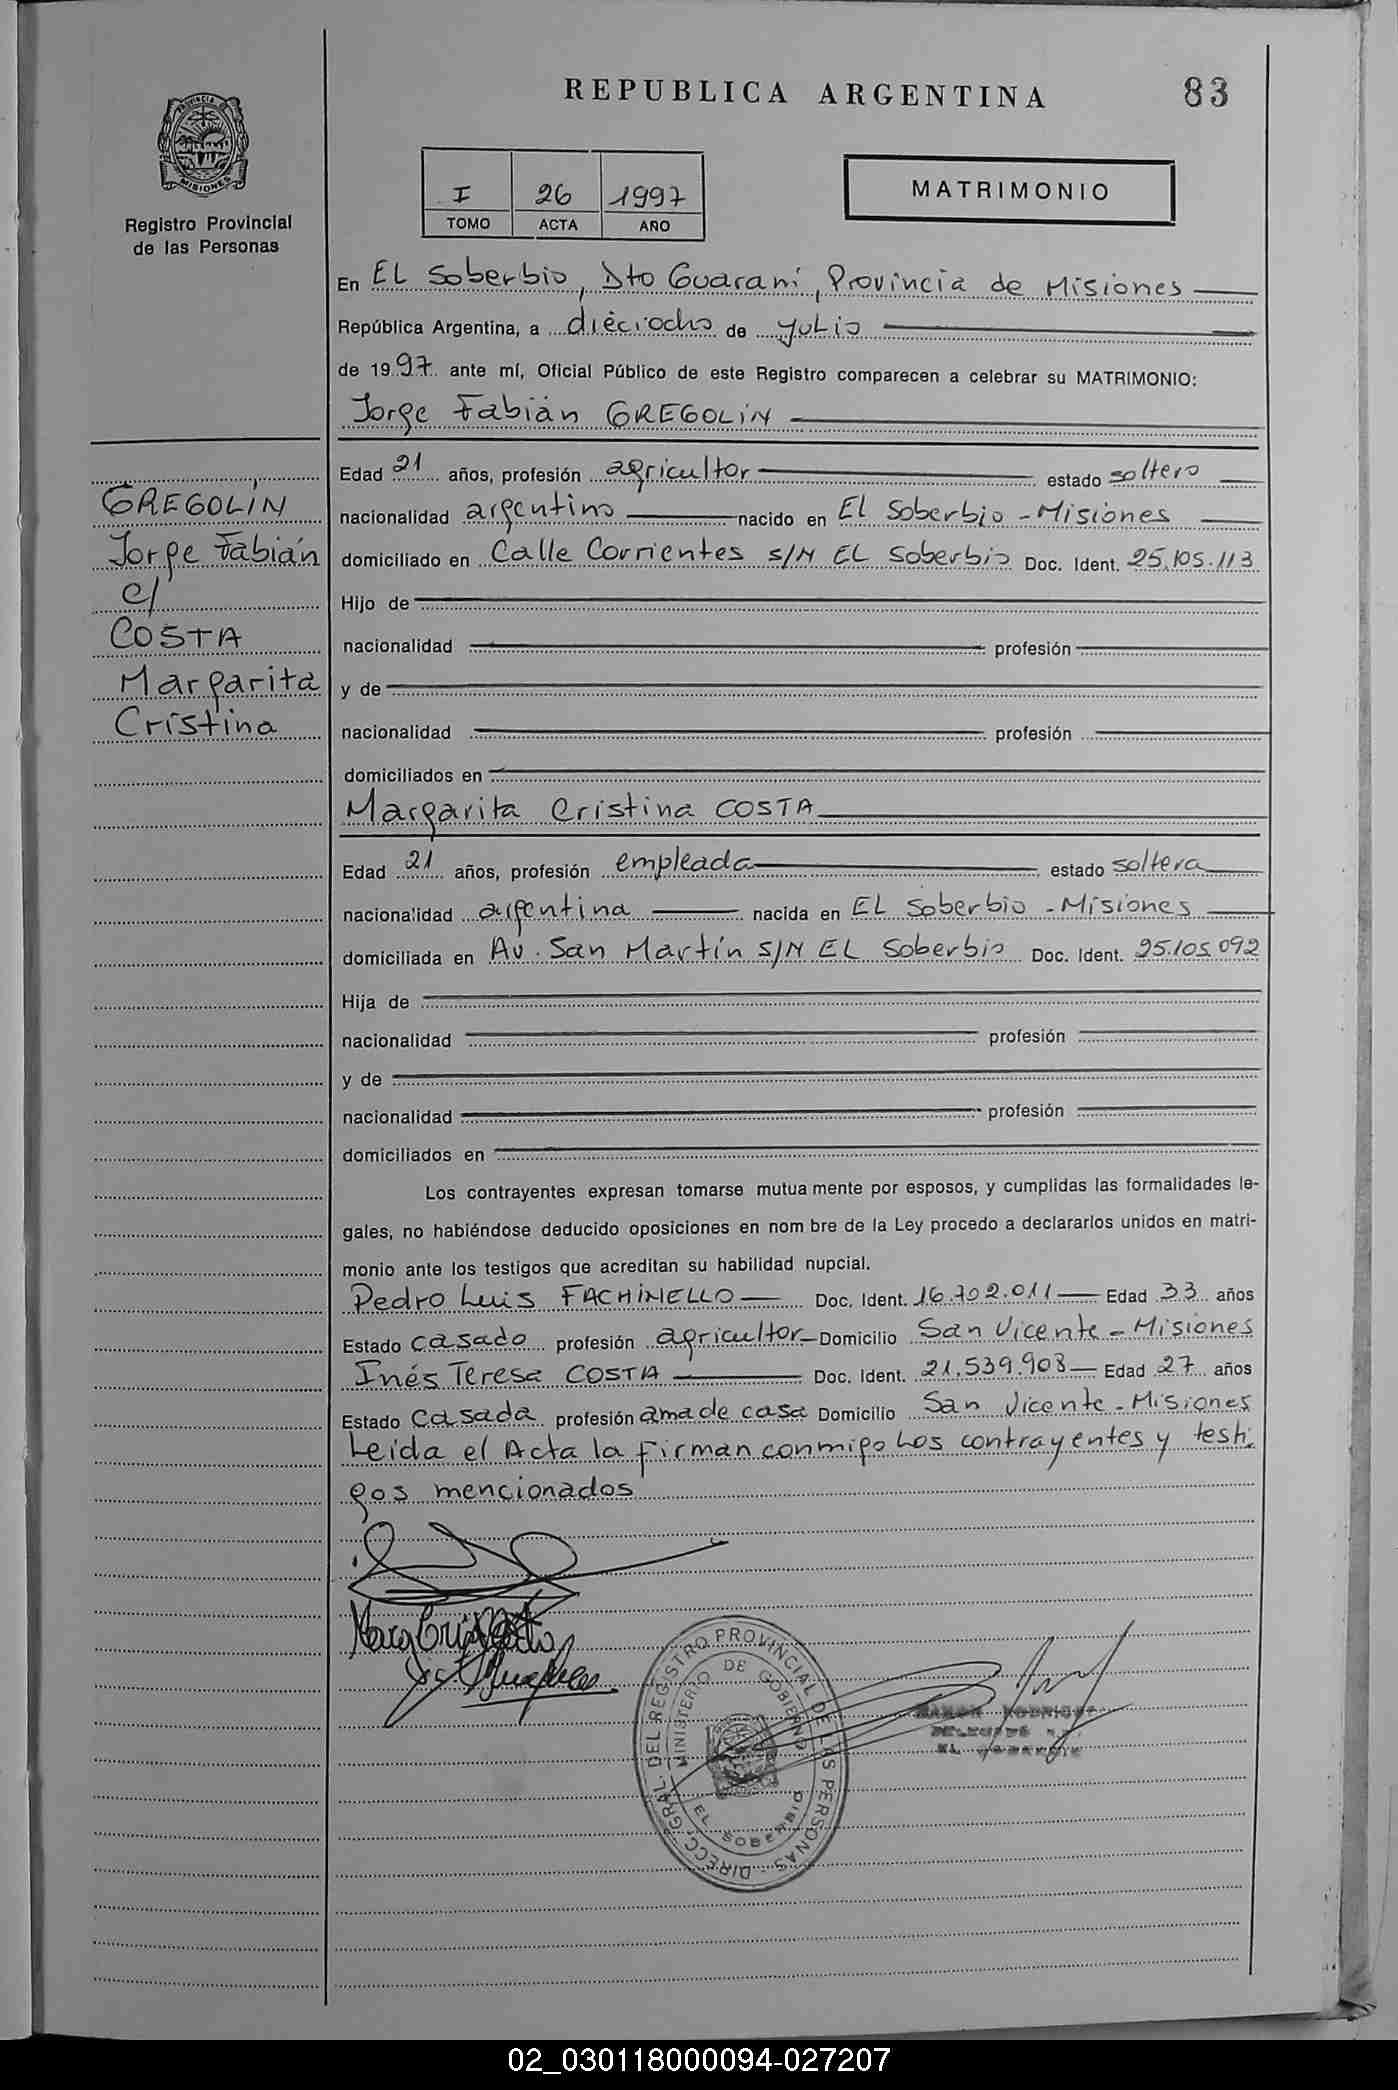 REPUBLICA ARGENTINA
83
PROVINCIA DE
MISIONES
Registro Provincial
de las Personas
I 26 1997
TOMO ACTA AÑO
MATRIMONIO
En EL Soberbio, Dto Guaraní, Provincia de Misiones
República Argentina, a dieciocho de yulio
de 1997 ante mí, Oficial Público de este Registro comparecen a celebrar su MATRIMONIO:
Jorge Fabián GREGOLIN
GREGOLIN
Jorge Fabián
c/
COSTA
Margarita
Cristina
Edad 21 años, profesión agricultor estado soltero
nacionalidad argentino nacido en El Soberbio - Misiones
domiciliado en Calle Corrientes s/N EL Soberbio Doc. Ident. 25.105.113
Hijo de
nacionalidad profesión
y de
nacionalidad profesión
domiciliados en
Margarita Cristina COSTA
Edad 21 años, profesión empleada estado soltera
nacionalidad argentina nacida en EL Soberbio - Misiones
domiciliada en Av. San Martín S/N EL Soberbio Doc. Ident. 25.105.092
Hija de
nacionalidad profesión
y de
nacionalidad profesión
domiciliados en
Los contrayentes expresan tomarse mutua mente por esposos, y cumplidas las formalidades le-
gales, no habiéndose deducido oposiciones en nom bre de la Ley procedo a declararlos unidos en matri-
monio ante los testigos que acreditan su habilidad nupcial.
Pedro Luis FACHINELLO Doc. Ident. 16.702.011 Edad 33 años
Estado casado profesión agricultor Domicilio San Vicente - Misiones
Inés Teresa COSTA Doc. Ident. 21.539.908 Edad 27 años
Estado Casada profesión ama de casa Domicilio San Vicente - Misiones
Leida el Acta la firman conmigo Los contrayentes y testi-
gos mencionados
DIRECC. GRAL. DEL REGISTRO PROVINCIAL DE LAS PERSONAS
MINISTERIO DE GOBIERNO
EL SOBERBIO
RAMON RODRIGUEZ
EL SOBERBIO
02_030118000094-027207